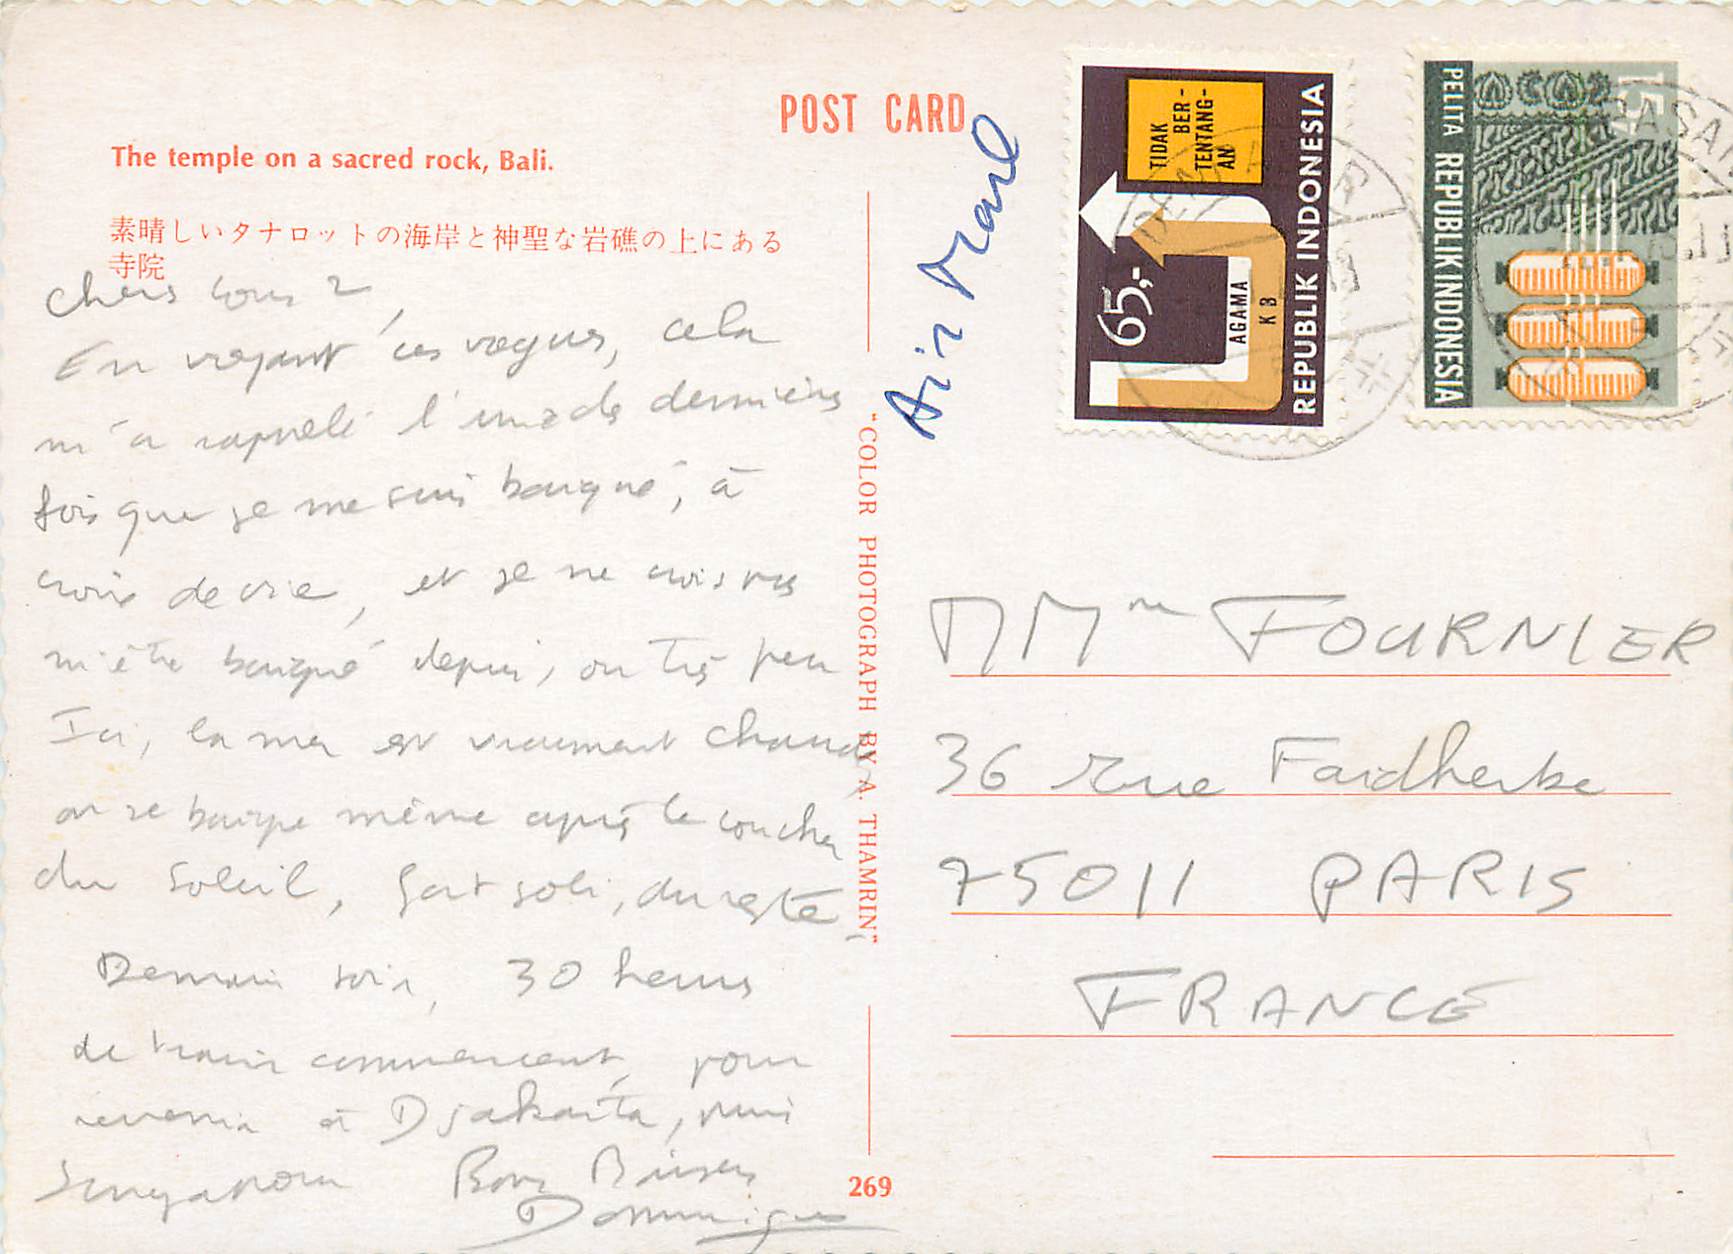 POST CARD
The temple on a sacred rock, Bali.
素晴しいタナロットの海岸と神聖な岩礁の上にある
寺院
Chers vous 2,
En voyant ces vagues, cela
m'a rappelé l'une des dernières
fois que je me suis baigné, à
croix de vie, et je ne crois pas
m'être baigné depuis, ou très peu
Ici, la mer est vraiment chaude,
on se baigne même après le coucher
du soleil, fort joli, du reste.
Demain soir, 30 heures
de train commencent, pour
revenir à Djakarta, puis
Singapour Bons Baisers
Dominique
"COLOR PHOTOGRAPH BY A. THAMRIN"
269
Air Mail
TIDAK
BER-
TENTANG-
AN
65,-
AGAMA
KB
REPUBLIK INDONESIA
15,-
PELITA REPUBLIK INDONESIA
MMme FOURNIER
36 rue Faidherbe
75011 PARIS
FRANCE